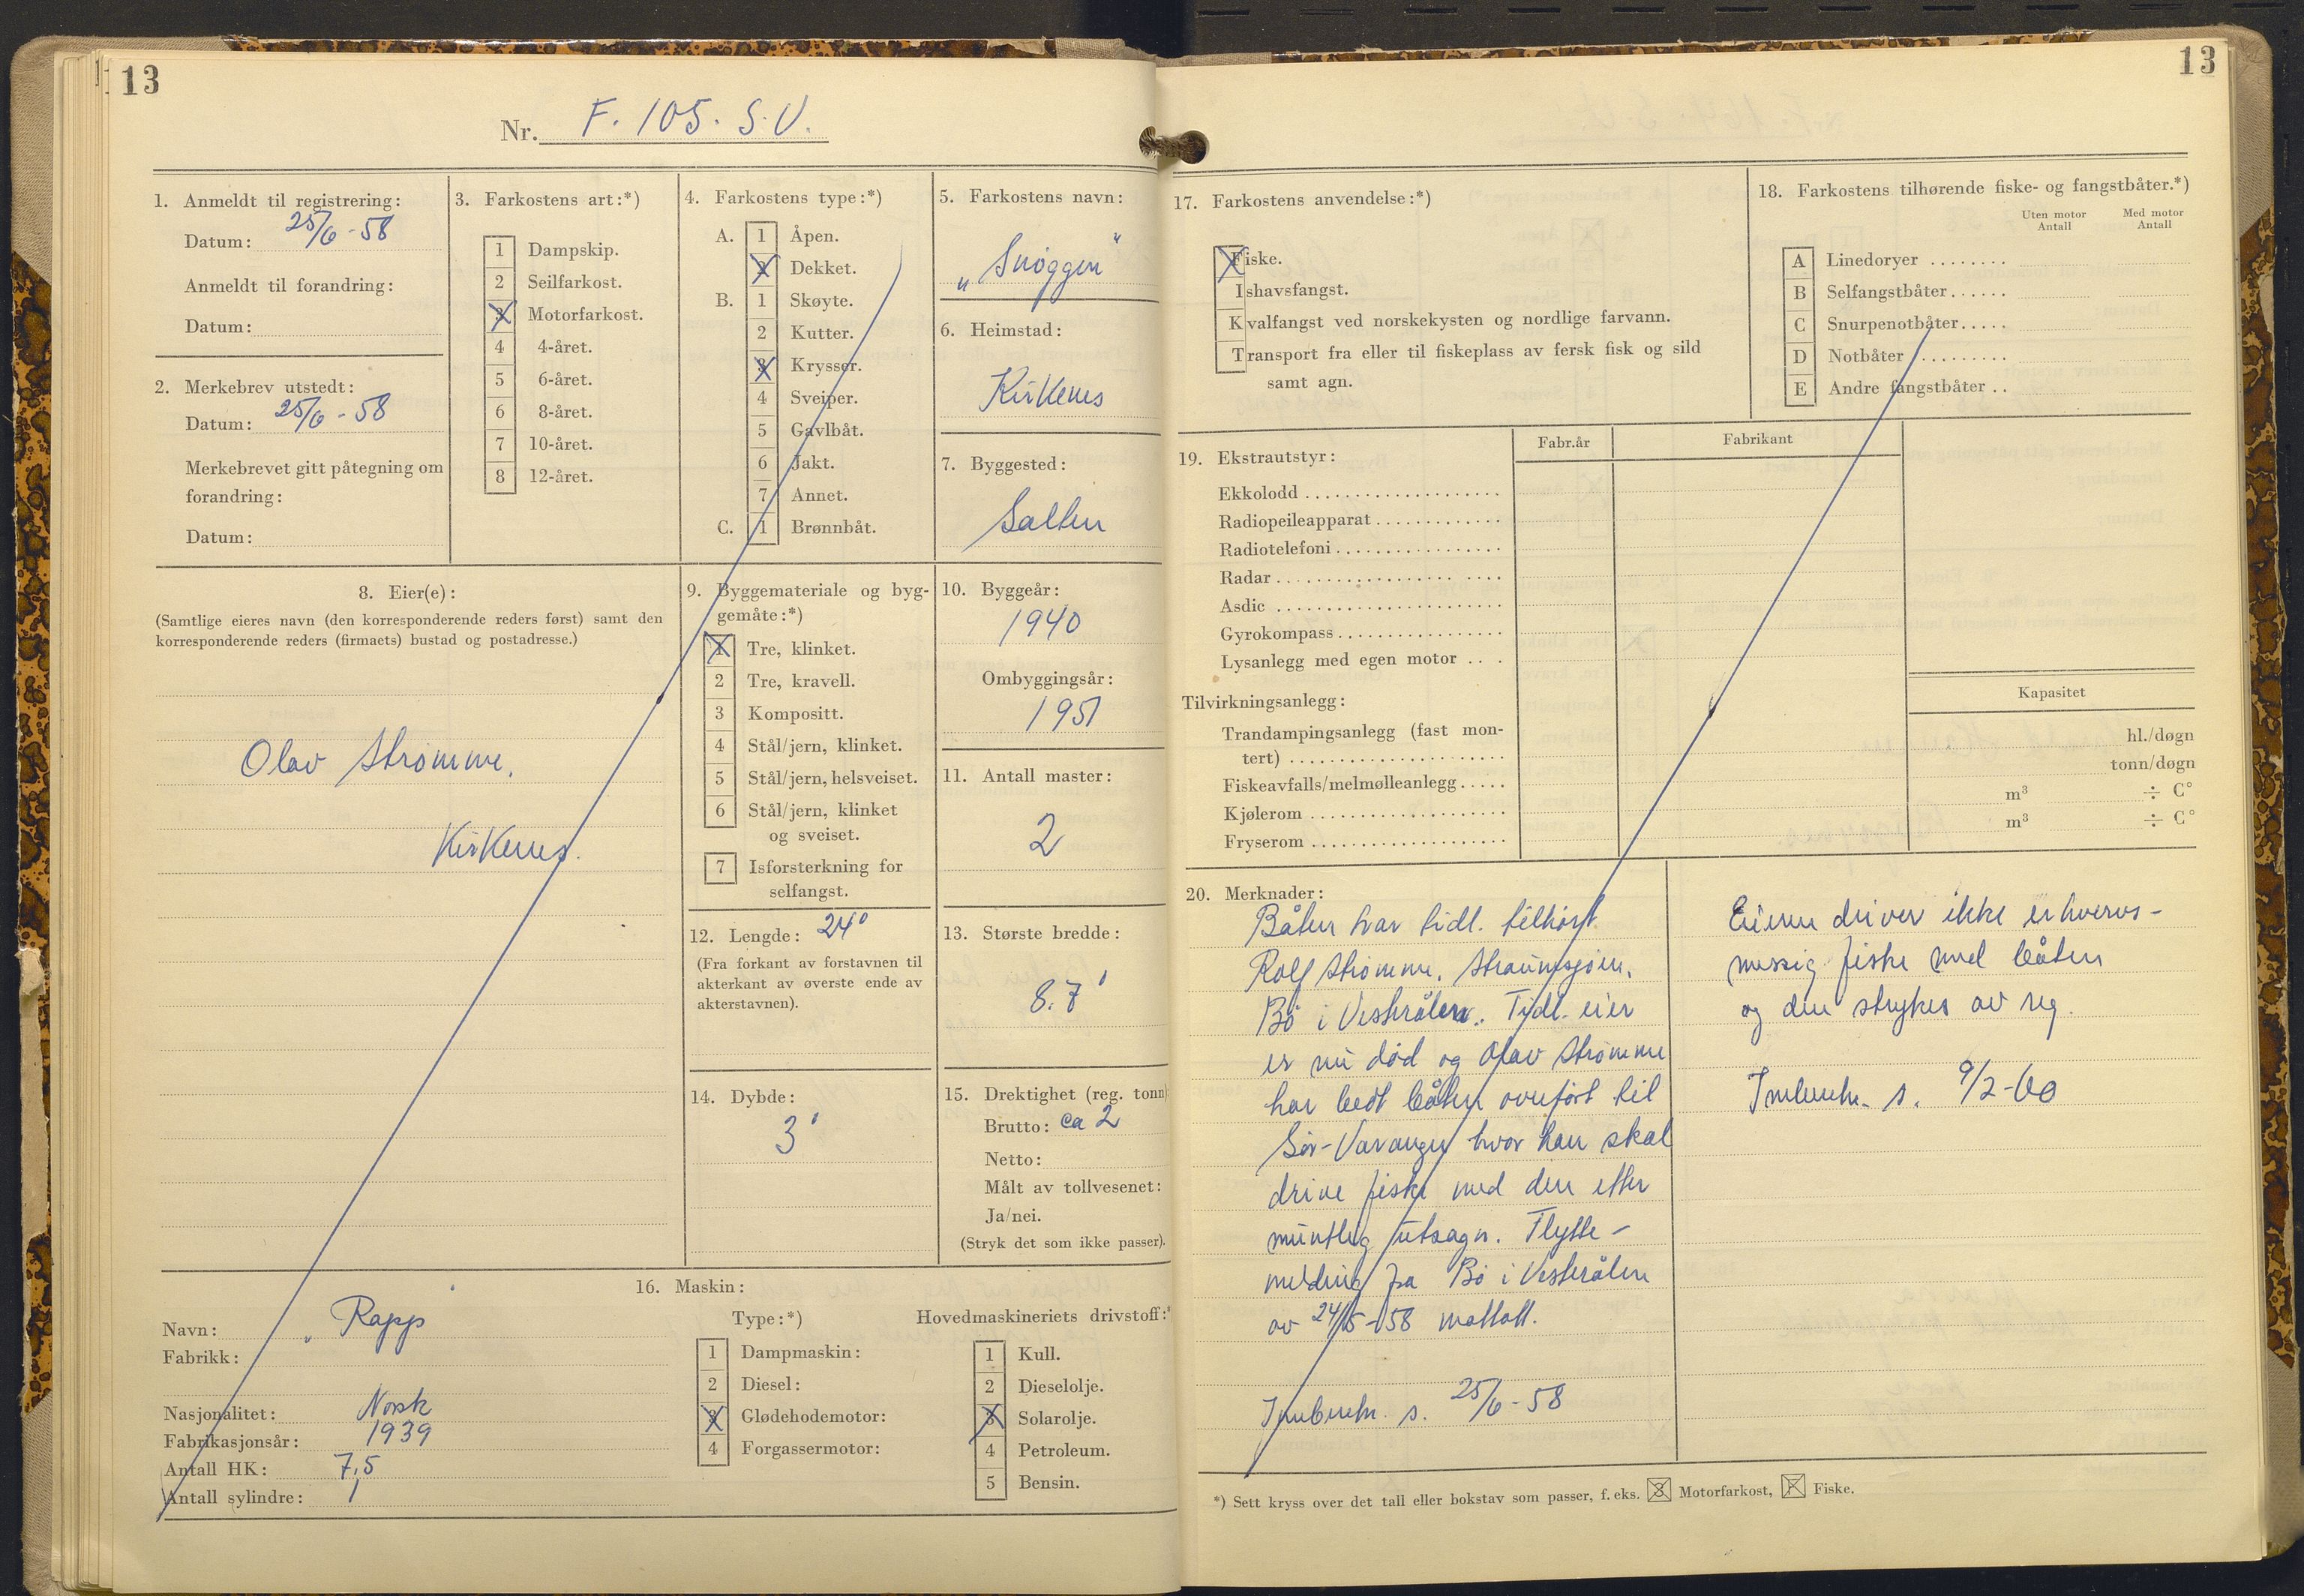 13
Nr. F. 105. S.V.
1. Anmeldt til registrering:
Datum: 25/6 - 58
Anmeldt til forandring:
Datum:
2. Merkebrev utstedt:
Datum: 25/6 - 58
Merkebrevet gitt påtegning om
forandring:
Datum:
3. Farkostens art:*)
1 Dampskip.
2 Seilfarkost.
3 Motorfarkost.
4 4-året.
5 6-året.
6 8-året.
7 10-året.
8 12-året.
4. Farkostens type:*)
A. 1 Åpen.
2 Dekket.
B. 1 Skøyte.
2 Kutter.
3 Krysser.
4 Sveiper.
5 Gavlbåt.
6 Jakt.
7 Annet.
C. 1 Brønnbåt.
5. Farkostens navn:
„Snøggen"
6. Heimstad:
Kirkenes
7. Byggested:
Salten
8. Eier(e):
(Samtlige eieres navn (den korresponderende reders først) samt den
korresponderende reders (firmaets) bustad og postadresse.)
Olav Strømme.
Kirkenes.
9. Byggemateriale og byg-
gemåte:*)
1 Tre, klinket.
2 Tre, kravell.
3 Kompositt.
4 Stål/jern, klinket.
5 Stål/jern, helsveiset.
6 Stål/jern, klinket
og sveiset.
7 Isforsterkning for
selfangst.
10. Byggeår:
1940
Ombyggingsår:
1951
11. Antall master:
2
12. Lengde: 24'
(Fra forkant av forstavnen til
akterkant av øverste ende av
akterstavnen).
13. Største bredde:
8.7'
14. Dybde:
3'
15. Drektighet (reg. tonn)
Brutto: ca 2
Netto:
Målt av tollvesenet:
Ja/nei.
(Stryk det som ikke passer).
16. Maskin:
Navn: „Rapp"
Fabrikk:
Nasjonalitet: Norsk
Fabrikasjonsår: 1939
Antall HK: 7,5
Antall sylindre: 1
Type:*)
1 Dampmaskin:
2 Diesel:
3 Glødehodemotor:
4 Forgassermotor:
Hovedmaskineriets drivstoff:*
1 Kull.
2 Dieselolje.
3 Solarolje.
4 Petroleum.
5 Bensin.
13
17. Farkostens anvendelse:*)
Fiske.
Ishavsfangst.
Kvalfangst ved norskekysten og nordlige farvann.
Transport fra eller til fiskeplass av fersk fisk og sild
samt agn.
18. Farkostens tilhørende fiske- og fangstbåter.*)
Uten motor Med motor
Antall Antall
A Linedoryer ........
B Selfangstbåter......
C Snurpenotbåter.....
D Notbåter .........
E Andre fangstbåter ..
19. Ekstrautstyr: Fabr.år Fabrikant
Ekkolodd
Radiopeileapparat
Radiotelefoni
Radar
Asdic
Gyrokompass
Lysanlegg med egen motor
Tilvirkningsanlegg: Kapasitet
Trandampingsanlegg (fast mon-
tert) hl./døgn
Fiskeavfalls/melmølleanlegg tonn/døgn
Kjølerom m³ ÷ C°
Fryserom m³ ÷ C°
20. Merknader:
Båten har tidl. tilhørt
Rolf Strømme, Straumsjøen,
Bø i Vesterålen. Tidl. eier
er nu død og Olav Strømme
har bedt båten overført til
Sør-Varanger hvor han skal
drive fiske med den etter
muntlig utsagn. Flytte-
melding fra Bø i Vesterålen
av 24/5-58 mottatt.
25/6 - 58
Eieren driver ikke erhvervs-
messig fiske med båten
og den strykes av reg.
9/2-60
*) Sett kryss over det tall eller bokstav som passer, f. eks. 3 Motorfarkost, F Fiske.